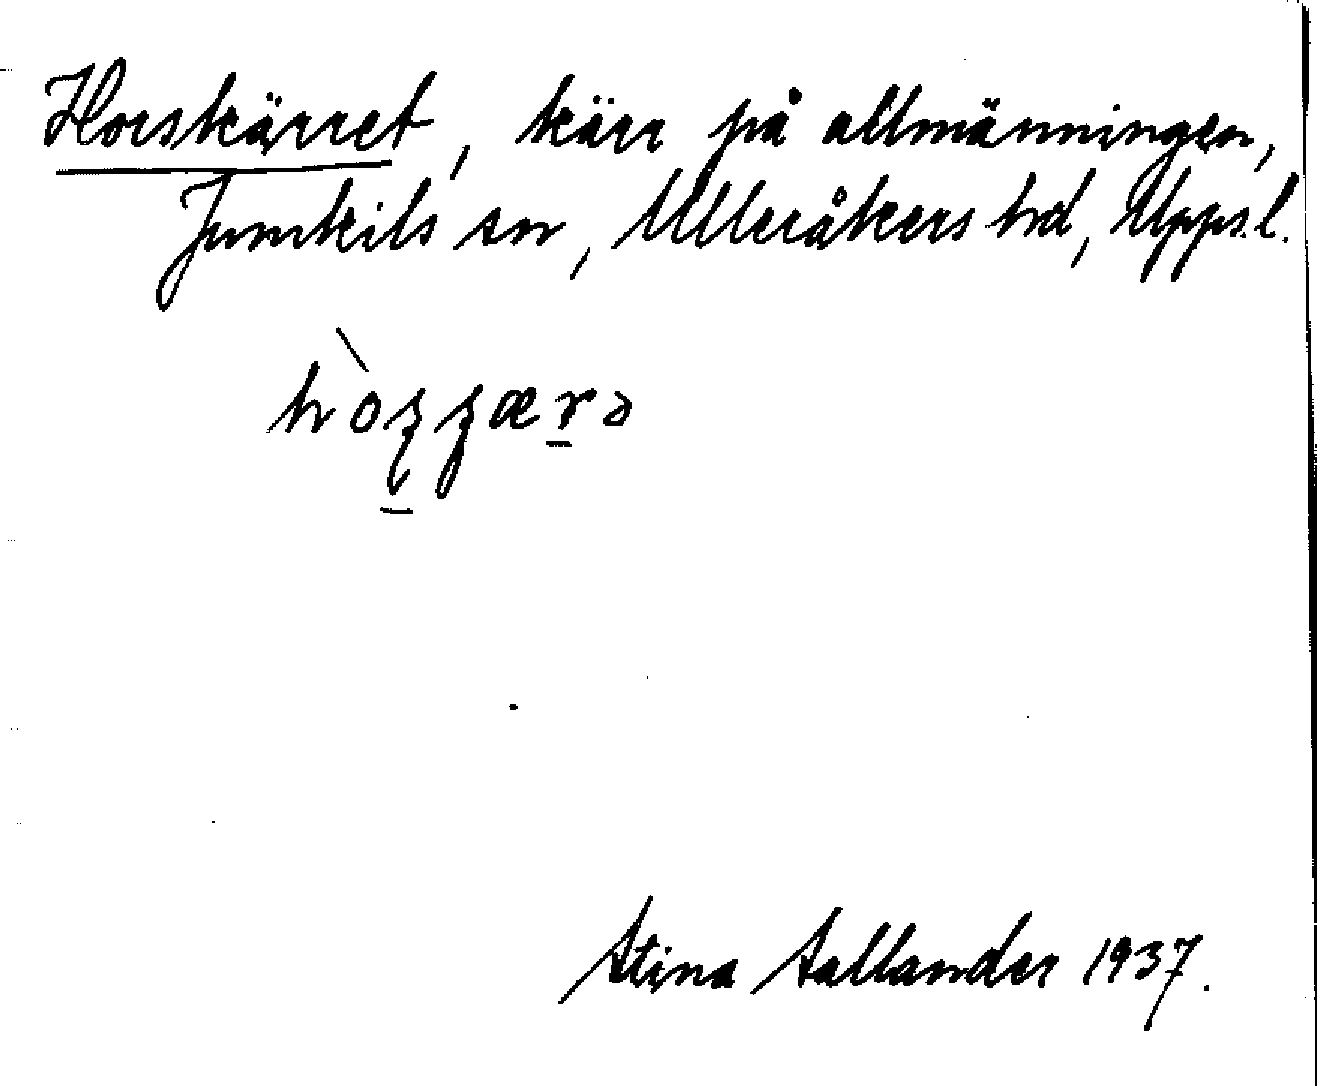 Horskärret, kärr på allmänningen,
Jumkils sn, Ulleråkers hd, Uppl.
Stina Sallander 1937.